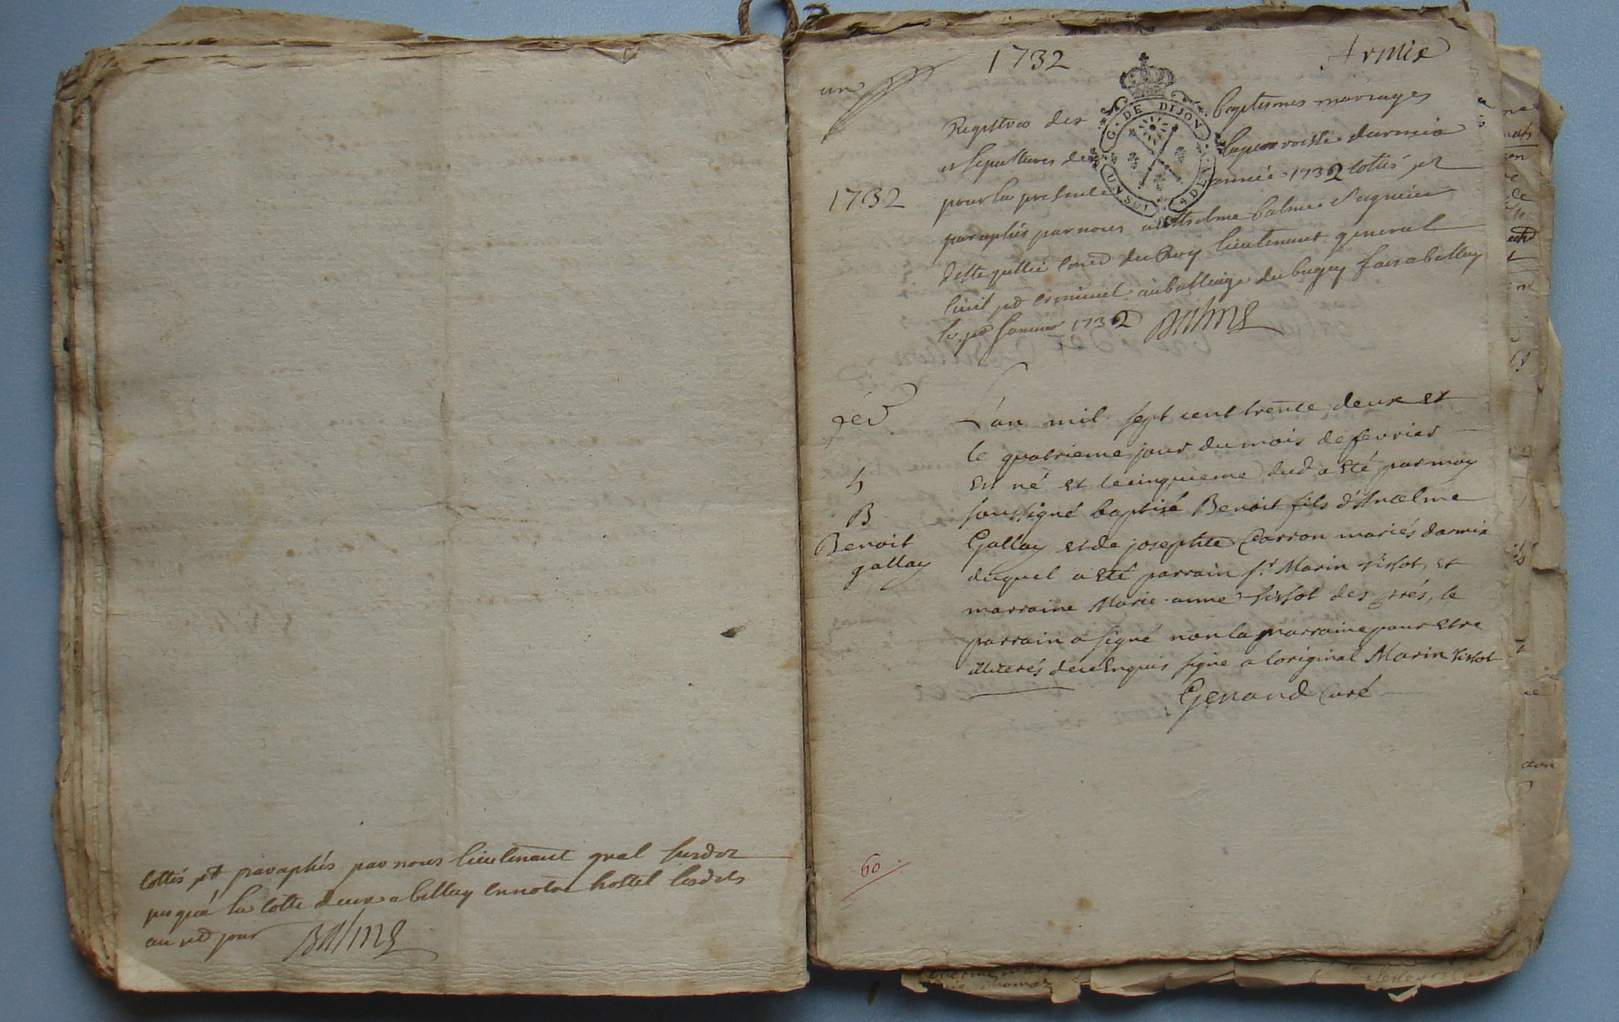 cottés et paraphés par nous lieutenant gnal susdit
jusqua la cotte deux a belley en notre hostel lesdits
an et jour Balme
1732 Armix
un
G. DE DIJON
Registre des baptesmes mariages
et sepultures de la parroisse darmix
1732
pour la presente année 1732 cottés et
paraphés par nous anthelme balme seigneur
conr du Roy lieutenant general
civil et criminel au balliage du bugey fait a belley
le janvier 1732 Balme
L'an mil sept cent trente deux et
le quatrieme jour du mois de fevrier
4
est né et le cinquieme dud a eté par moy
B
soussigné baptisé Benoit fils d'Anthelme
Benoit
gallay
Gallay et de josephte Carron mariés darmix
duquel a eté parrain sr Marin tissot, et
marraine Marie-anne tissot des prés, le
parrain a signé non la marraine pour etre
illiterés de ce enquis signé a loriginal Marin tissot
Genand curé
60